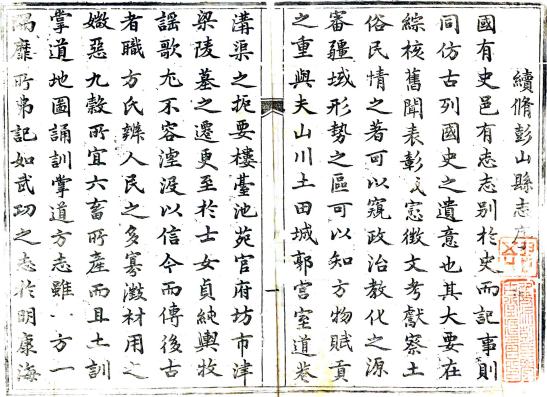 續脩彭山縣志序
國有史邑有志志别於史而記事則
同仿古列國史之遺意也其大要在
綜核舊聞表彰憲徵文考獻察土
俗民情之著可以窺政治教化之源
審疆域形勢之區可以知方物賦貢
之重與夫山川土田城郭宫室道巷
溝渠之扼要樓臺池苑官府坊市津
梁陵墓之遷更至於士女貞純輿牧
謡歌尤不容湮没以信今而傳後古
者職方氏辨人民之多寡澂材用之
媺惡九穀所宜六畜所產而且土訓
掌道地圖誦訓掌道方志雖一方一
隅靡所弗記如武功之志於明康海